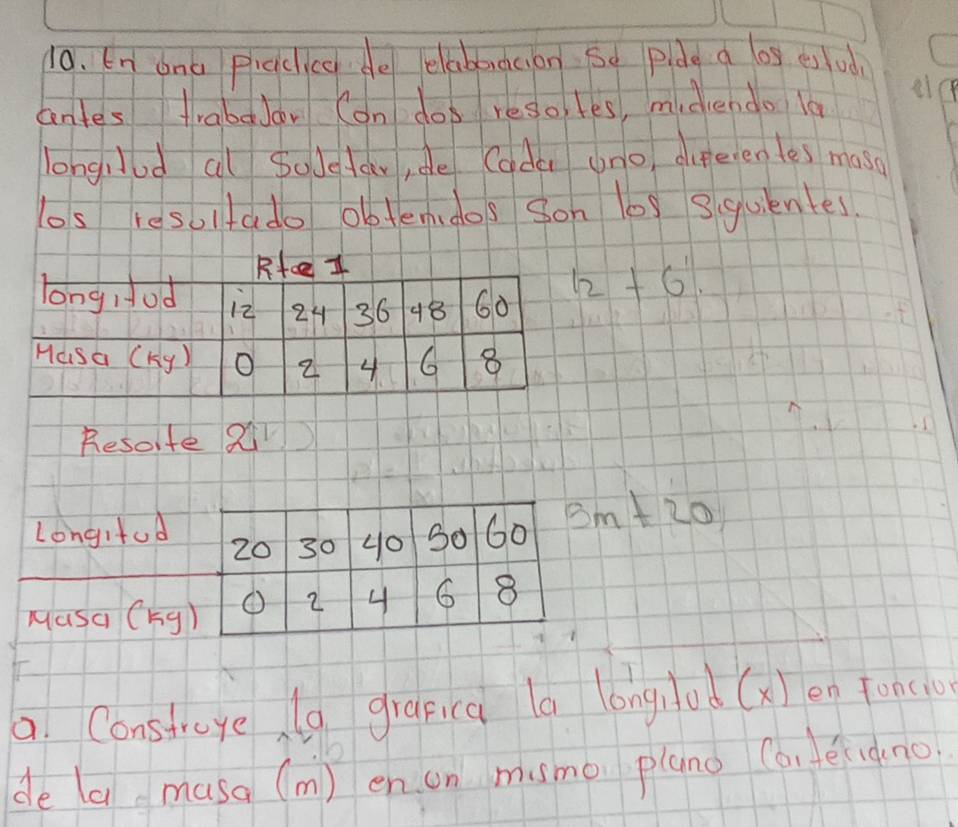 10. En una practica de elaboracion se pide a los estudi
antes trabajar con dos resortes, midiendo la
longitud al sujetar, de cada uno, diferentes masa
los resultado obtenidos son los siguientes.
Rte 1
longitud 12 24 36 48 60
Masa (Kg) 0 2 4 6 8
12 + 6
Resorte 2
Longitud 20 30 40 50 60
Masa (Kg) 0 2 4 6 8
5m + 20
a. Construye la grafica la longitud (x) en funcion
de la masa (m) en un mismo plano cartesiano.